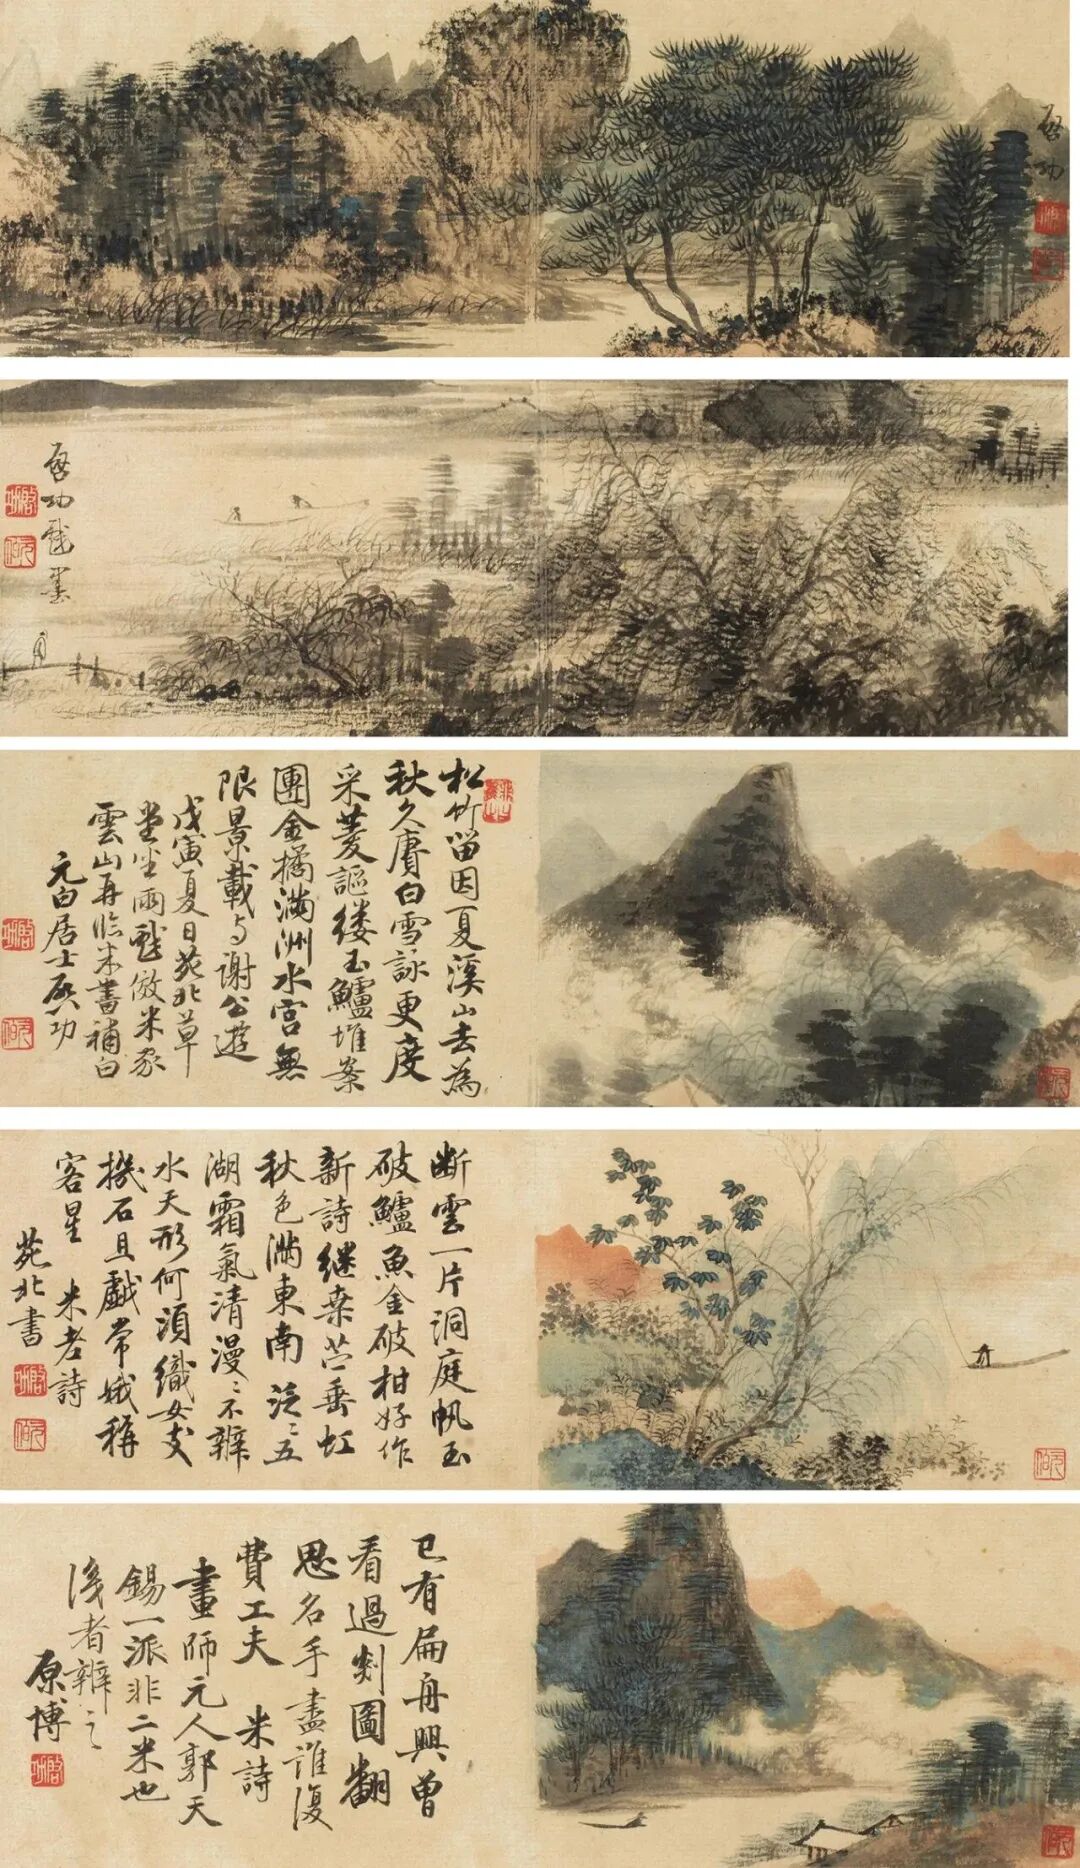 啓功
啓功戲墨
松竹留因夏溪山去為
秋久賡白雪詠更度
采菱謳縷玉鱸堆案
團金橘滿洲水宮無
限景載与謝公遊
戊寅夏日苑北草
堂坐雨戲倣米家
雲山再臨米書補白
元白居士啓功
断雲一片洞庭帆玉
破鱸魚金破柑好作
新詩継桑苎垂虹
秋色滿東南泛〻五
湖霜氣清漫〻不辨
水天形何須織女支
機石且戲常娥稱
客星 米老詩
苑北書
已有扁舟興曾
看過剡圖翻
思名手盡誰復
費工夫 米詩
畫師元人郭天
錫一派非二米也
後者辨之
原博